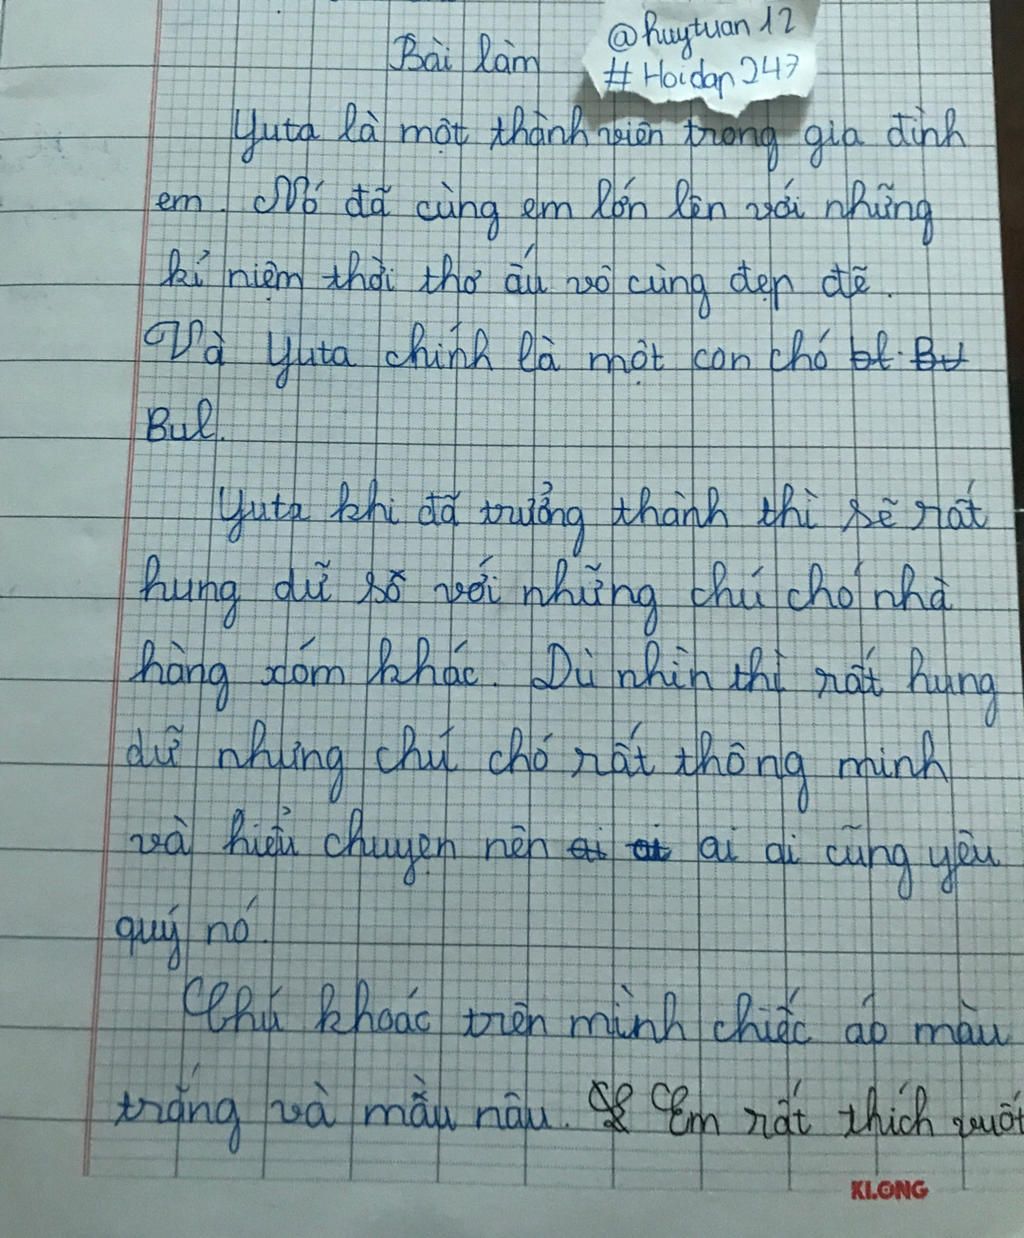 Bài làm
@huytuan12
#Hoidap247
Yuta là một thành viên trong gia đình
em. Nó đã cùng em lớn lên với những
kỉ niệm thời thơ ấu vô cùng đẹp đẽ.
Và Yuta chính là một con chó
Bul.
Yuta khi đã trưởng thành thì sẽ rất
hung dữ số với những chú chó nhà
hàng xóm khác. Dù nhìn thì rất hung
dữ nhưng chú chó rất thông minh
và hiểu chuyện nên ai ai cũng yêu
quý nó.
Chú khoác trên mình chiếc áo màu
trắng và mầu nâu. Em rất thích vuốt
KLONG